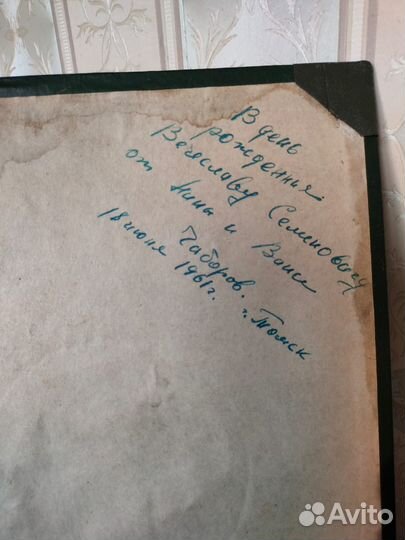 В день
рождения
Вячеславу Семеновичу
от Нины и Вани
Чаборов.
18 июня 1961 г. г. Томск
Avito